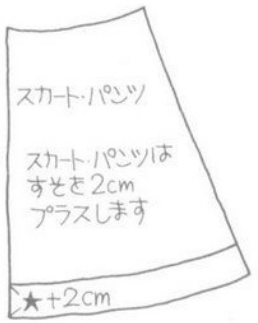 スカート・パンツ
スカート・パンツは
すそを2cm
プラスします
★+2cm